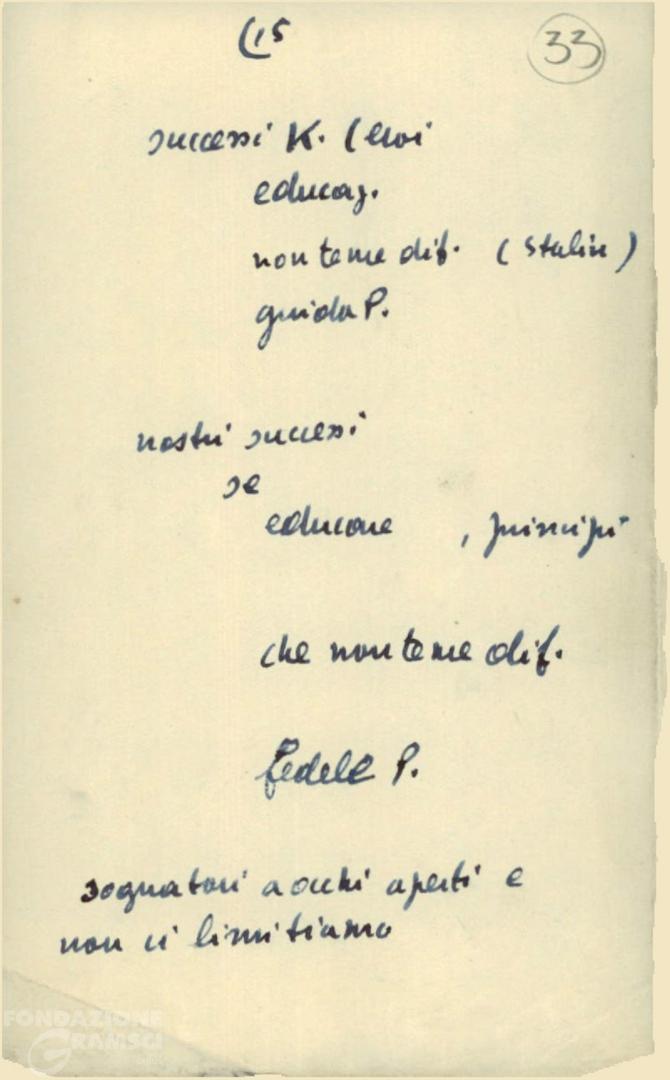 (15
33
successi K. (eroi
educaz.
non teme dif. (Stalin)
guida P.
nostri successi
se
educare , principi
che non teme dif.
fedele P.
sognatori a occhi aperti e
non ci limitiamo
FONDAZIONE
GRAMSCI